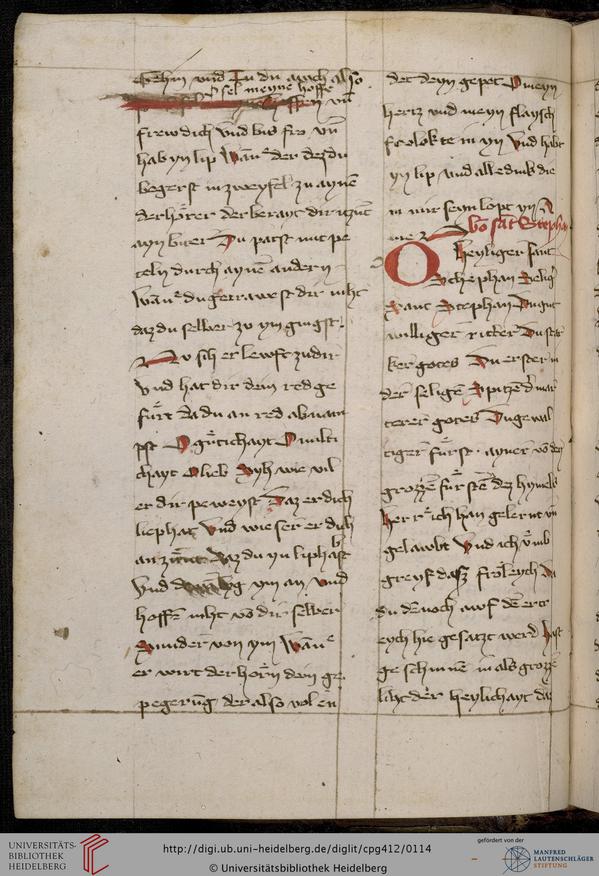 vnd Tu du auch also
sel meyne hoffe
hoffen vnd
frew dich Vnd bis fro vn̄
hab yn lip Wan̄ er der dez du
begerst in zweyfel zu aynē
der hörer der berayt dir ytzūt
ayn biter Du parst mit pe
teln durch aynē andern
wan̄ du getrawest dir niht
daz du selber zu ym gingst.
Nv sich er lewft zu dir
Vnd hat dir dein red ge
fürt da du an red abnam
pst O gütichayt O milti
chayt O lieb Sych wie vil
er dir peweyst Daz er dich
liep hat Vnd wie ser er dich
an Daz du yn lip habst
Vnd ym an Vnd
hoffe niht vō dir selber
Sunder von ym Wan̄
er wirt der horn dein ge
pegerūg der also vol en
det deyn gepet O meyn
hertz vnd meyn flaysch
frolokte in yn Vnd habt
yn lip Vnd alle ding die
in mir seyn lopt yn A
mē
Vō sāt Stephā
O heyliger sant
Stephan Selig
Sant Stephan Du gut
williger ritter Du ster
ker gotes Du erster in
der selige Spitze d' mar
terer gotes Du gewal
tiger fürst. ayner vō den
grozzē fürstē dez hymels
Herr ich han gelernt vn̄
gelawbt Vnd ich vmb
greyf dasz frölych Daz
du dēnoch awf dē ertr
eych hie gesatzt werd Hast
geschinen in als grozze
liht der heylichayt daz
UNIVERSITÄTS-
BIBLIOTHEK
HEIDELBERG
http://digi.ub.uni-heidelberg.de/diglit/cpg412/0114
© Universitätsbibliothek Heidelberg
gefördert von der
MANFRED
LAUTENSCHLÄGER
STIFTUNG